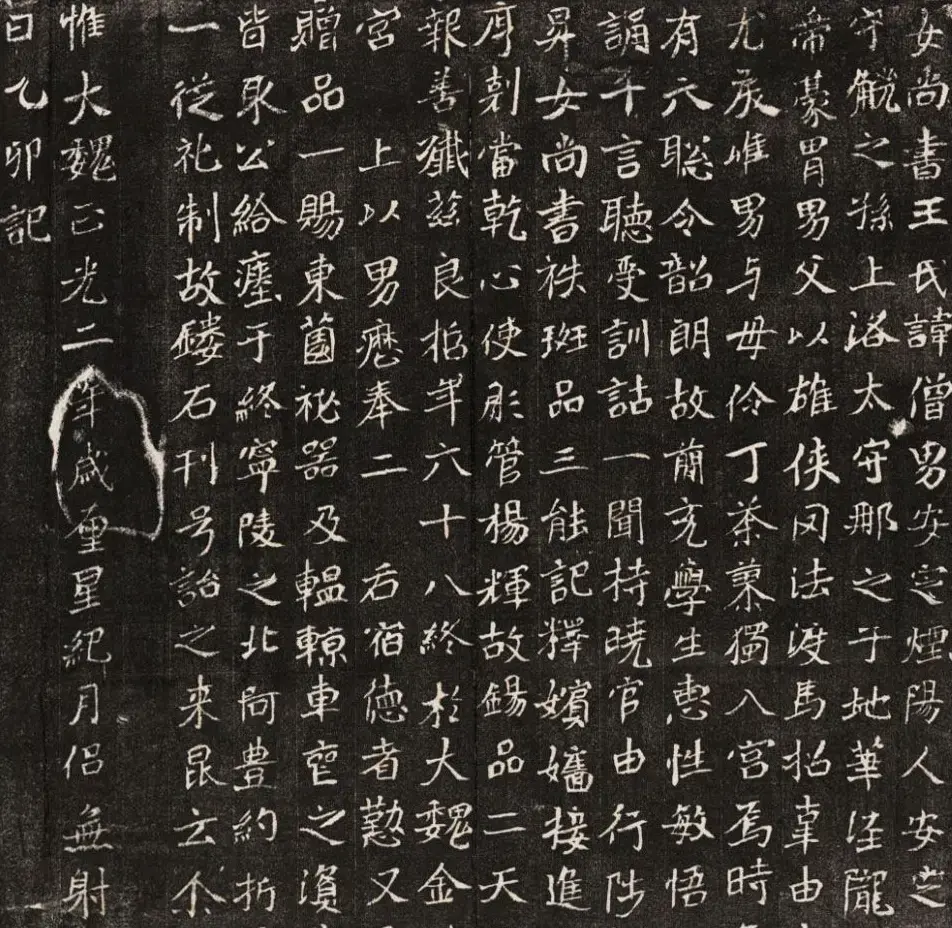 女尚書王氏諱僧男安定煙陽人安定
守觥之孫上洛太守那之子地華涇隴
帝豪胄男父以雄俠罔法渡馬招辜由
尤戾唯男与母伶丁荼蓼獨入宮焉時
有六聰令韶朗故蕳充學生惠性敏悟
誦千言聽受訓詁一聞持曉官由行陟
昇女尚書秩班品三能記釋嬪嬙接進
序剋當乾心使彤管楊輝故錫品二天
報善殲玆良招年六十八終於大魏金
宮上以男癧奉二后宿德者懃又
贈品一賜東園祕器及轀輬車喪之資
皆取公給瘞于終寧陵之北阿豊約折
一從礼制故鏤石刊号詒之来昆云尒
惟大魏正光二年歲厘星紀月侣無射
日乙卯記